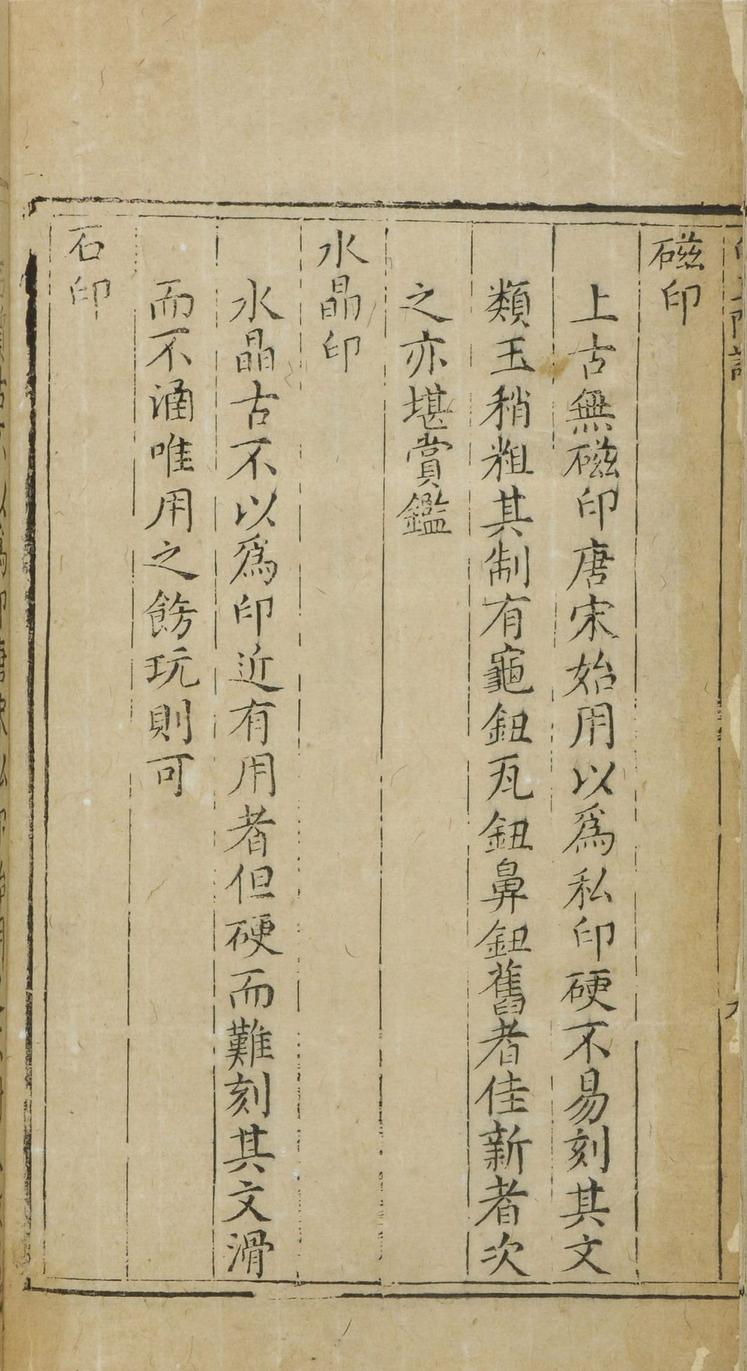 磁印
上古無磁印唐宋始用以爲私印硬不易刻其文
類玉稍粗其制有龜鈕瓦鈕鼻鈕舊者佳新者次
之亦堪賞鑑
水晶印
水晶古不以爲印近有用者但硬而難刻其文滑
而不涵唯用之餝玩則可
石印